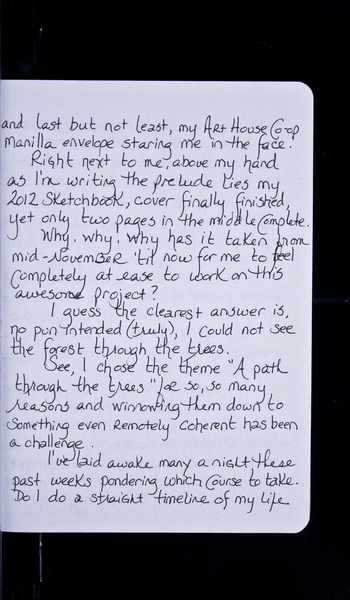 and last but not least, my Art House Co-op
manilla envelope staring me in the face.
Right next to me, above my hand
as I'm writing the prelude lies my
2012 Sketchbook, cover finally finished,
yet only two pages in the middle complete.
Why, why, why has it taken from
mid-November 'til now for me to feel
completely at ease to work on this
awesome project?
I guess the clearest answer is,
no pun intended (truly), I could not see
the forest through the trees.
See, I chose the theme "A path
through the trees" for so, so many
reasons and winnowing them down to
something even remotely coherent has been
a challenge.
I've laid awake many a night these
past weeks pondering which course to take.
Do I do a straight timeline of my life